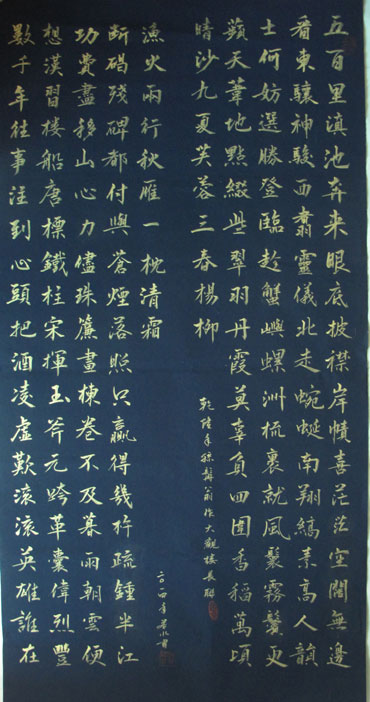 五百里滇池奔来眼底披襟岸幘喜茫茫空闊無邊
看東驤神駿西翥靈儀北走蜿蜒南翔縞素高人韻
士何妨選勝登臨趁蟹嶼螺洲梳裹就風鬟霧鬢更
蘋天葦地點綴些翠羽丹霞莫辜負四圍香稻萬頃
晴沙九夏芙蓉三春楊柳
乾隆年孫髯翁作大觀樓長聯
數千年往事注到心頭把酒凌虛歎滾滾英雄誰在
想漢習樓船唐標鐵柱宋揮玉斧元跨革囊偉烈豐
功費盡移山心力儘珠簾畫棟卷不及暮雨朝雲便
斷碣殘碑都付與蒼煙落照只贏得幾杵疏鐘半江
漁火兩行秋雁一枕清霜
二〇一四年